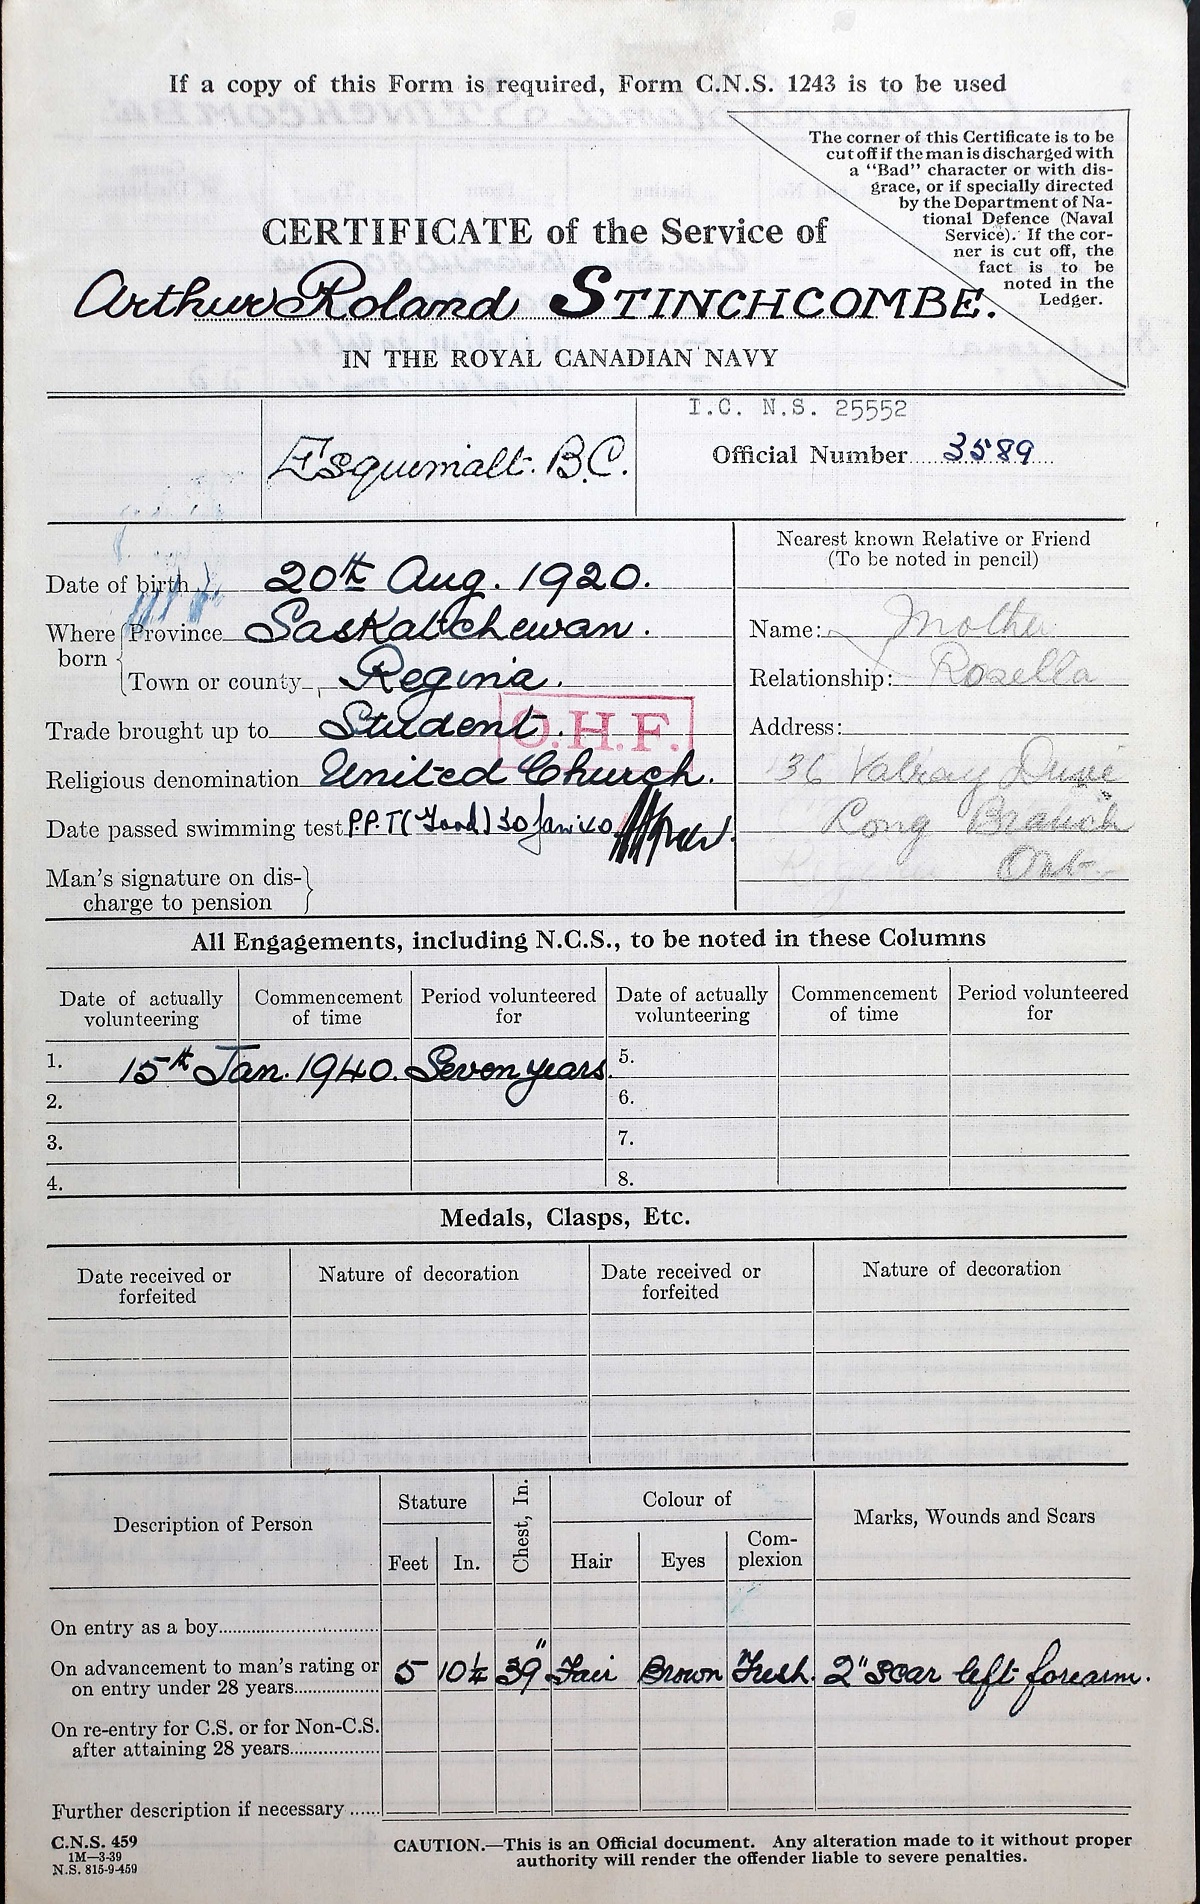 If a copy of this Form is required, Form C.N.S. 1243 is to be used
The corner of this Certificate is to be
cut off if the man is discharged with
a "Bad" character or with dis-
grace, or if specially directed
by the Department of Na-
tional Defence (Naval
Service). If the cor-
ner is cut off, the
fact is to be
noted in the
Ledger.
CERTIFICATE of the Service of
Arthur Roland STINCHCOMBE.
IN THE ROYAL CANADIAN NAVY
I.C. N.S. 25552
Esquimalt. B.C.
Official Number 3589
Nearest known Relative or Friend
(To be noted in pencil)
Date of birth 20th Aug. 1920.
Where born Province Saskatchewan.
Town or county Regina.
Trade brought up to Student.
O.H.F.
Religious denomination United Church.
Date passed swimming test P.P.T (Good) 30 Jan: 40
Man's signature on dis-
charge to pension
Name: Mother
Relationship: Rosella
Address:
36 Valray Drive
Long Branch
Ont.
All Engagements, including N.C.S., to be noted in these Columns
Date of actually volunteering Commencement of time Period volunteered for Date of actually volunteering Commencement of time Period volunteered for
1. 15th Jan. 1940. Seven years 5.
2. 6.
3. 7.
4. 8.
Medals, Clasps, Etc.
Date received or forfeited Nature of decoration Date received or forfeited Nature of decoration
Description of Person Stature Chest, In. Colour of Marks, Wounds and Scars
Feet In. Hair Eyes Com-
plexion
On entry as a boy
On advancement to man's rating or
on entry under 28 years 5 10¼ 39" Fair Brown Fresh. 2" scar left forearm.
On re-entry for C.S. or for Non-C.S.
after attaining 28 years
Further description if necessary
C.N.S. 459
1M—3-39
N.S. 815-9-459
CAUTION.—This is an Official document. Any alteration made to it without proper
authority will render the offender liable to severe penalties.